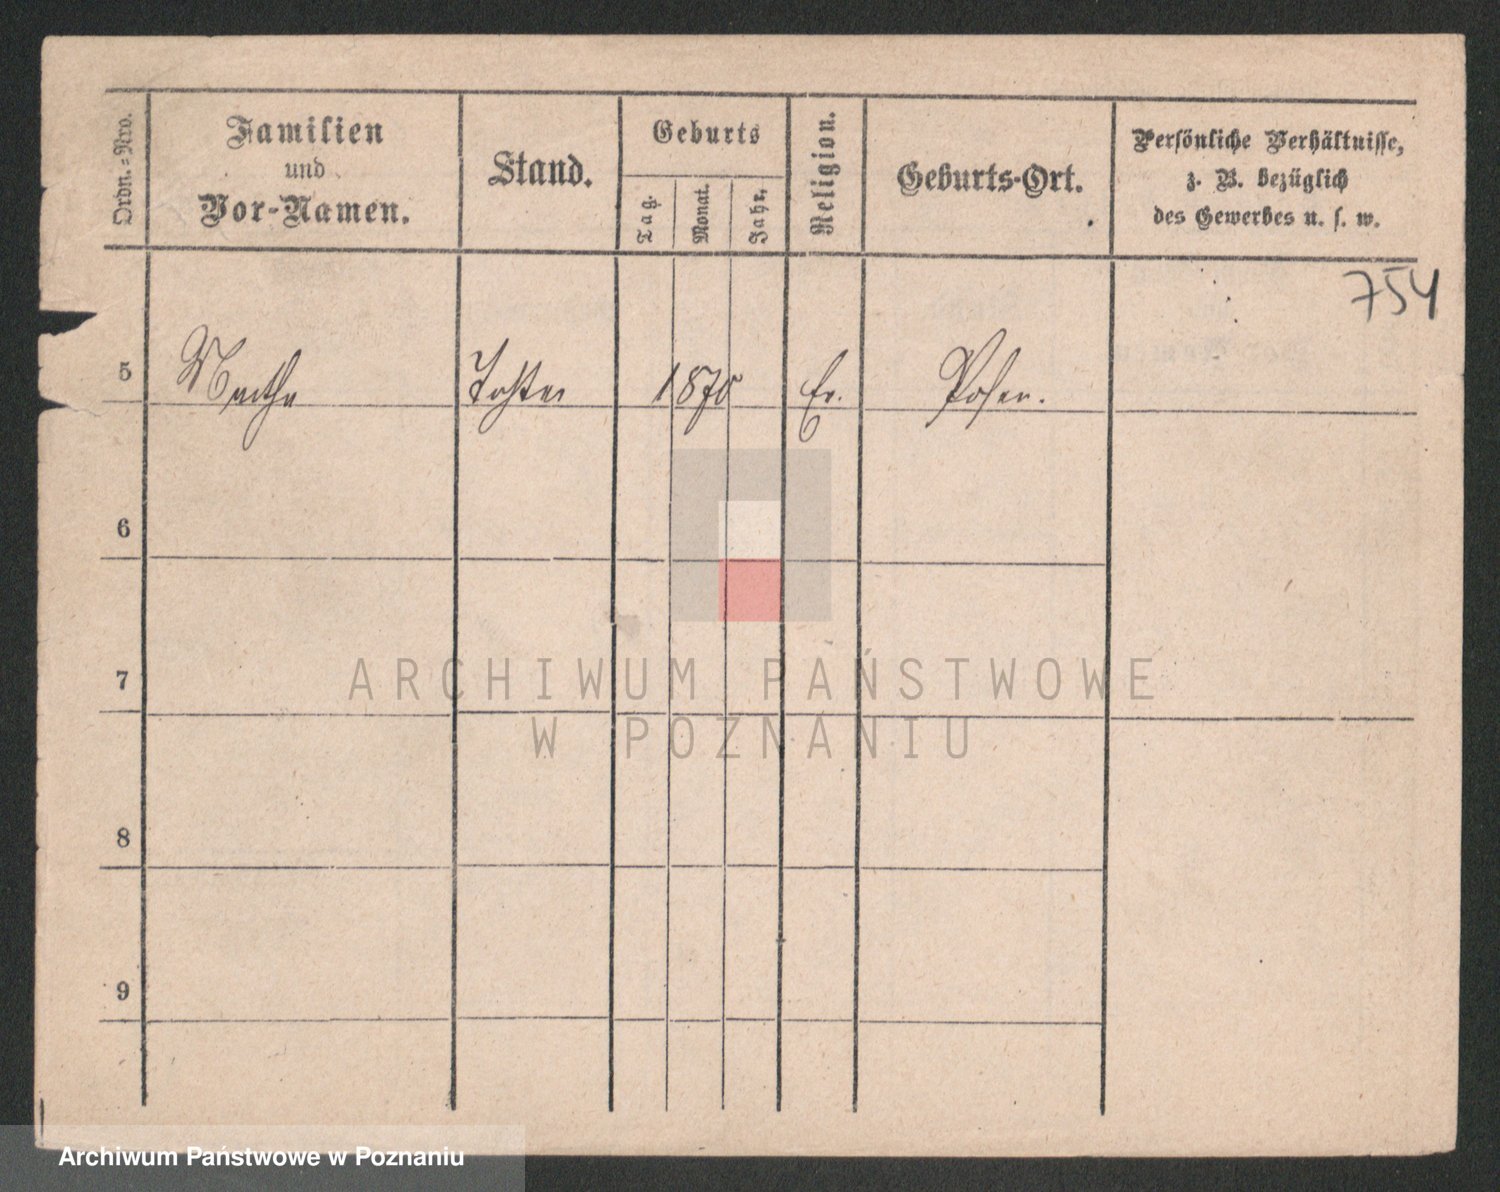 Ordn.=Nro.
Familien
und
Vor-Namen.
Stand.
Geburts
Tag.
Monat.
Jahr.
Religion.
Geburts-Ort.
Persönliche Verhältnisse,
z. B. bezüglich
des Gewerbes u. s. w.
754
5 Martha Tochter 187 Ev. Posen.
6
7
8
9
ARCHIWUM PAŃSTWOWE
W POZNANIU
Archiwum Państwowe w Poznaniu